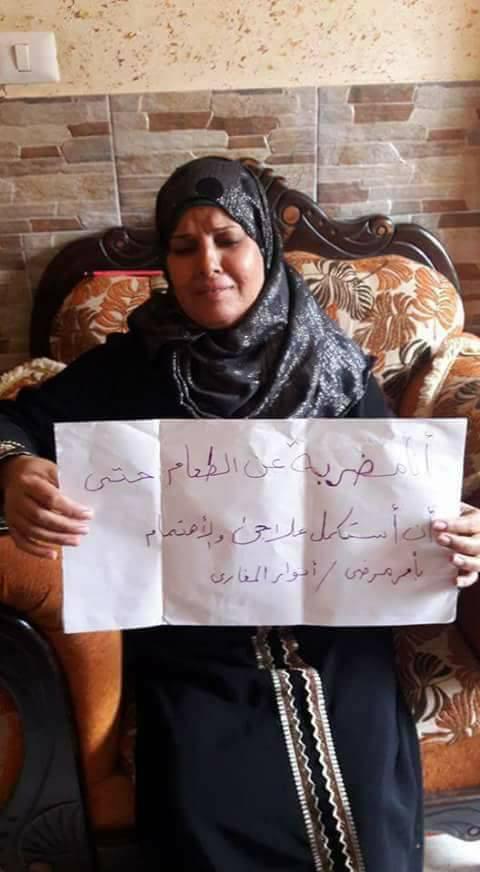 أنا مضربة عن الطعام حتى
أن أستكمل علاجي والأهتمام
بأمر مرضي / أنوار المغاري